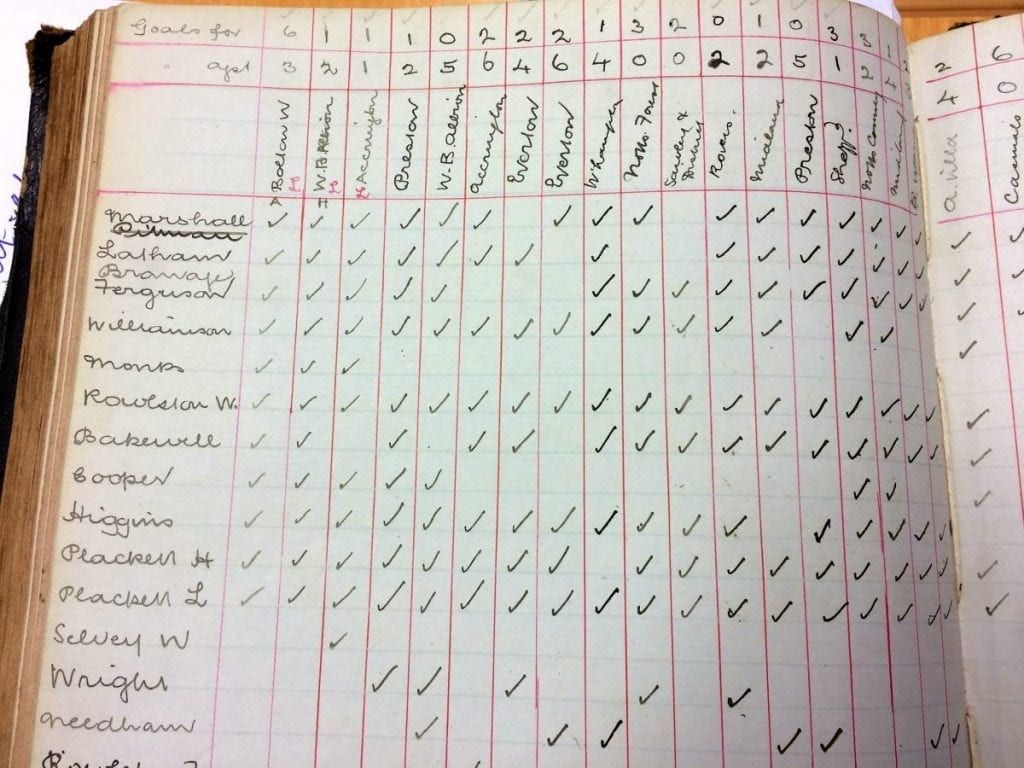 Goals for 6 1 1 1 0 2 2 2 1 3 2 0 1 0 3 3 1
" agst 3 2 1 2 5 6 4 6 4 0 0 2 2 5 1 2
2 6
4 0
A Bolton W
H W.B.Albion
H Accrington
Preston
W.B.Albion
Accrington
Everton
Everton
W'hampton
Notts Forest
Sawley &
Rovers.
Midland
Preston
Sheffd.
Notts County
A. Villa
Marshall ✓ ✓ ✓ ✓ ✓ ✓ ✓ ✓ ✓ ✓ ✓ ✓ ✓ ✓ ✓ ✓
Pitman
Latham ✓ ✓ ✓ ✓ ✓ ✓ ✓ ✓ ✓ ✓ ✓ ✓ ✓ ✓ ✓
Ferguson ✓ ✓ ✓ ✓ ✓ ✓ ✓ ✓ ✓ ✓ ✓ ✓ ✓ ✓ ✓
Williamson ✓ ✓ ✓ ✓ ✓ ✓ ✓ ✓ ✓ ✓ ✓ ✓ ✓ ✓ ✓
Monks ✓ ✓ ✓
Roulston W. ✓ ✓ ✓ ✓ ✓ ✓ ✓ ✓ ✓ ✓ ✓ ✓ ✓ ✓ ✓ ✓ ✓ ✓
Bakewell ✓ ✓ ✓ ✓ ✓ ✓ ✓ ✓ ✓ ✓ ✓ ✓ ✓ ✓ ✓
Cooper ✓ ✓ ✓ ✓ ✓ ✓ ✓
Higgins ✓ ✓ ✓ ✓ ✓ ✓ ✓ ✓ ✓ ✓ ✓ ✓ ✓ ✓ ✓ ✓ ✓
Plackett H ✓ ✓ ✓ ✓ ✓ ✓ ✓ ✓ ✓ ✓ ✓ ✓ ✓ ✓ ✓ ✓ ✓
Plackett L ✓ ✓ ✓ ✓ ✓ ✓ ✓ ✓ ✓ ✓ ✓ ✓ ✓ ✓ ✓ ✓ ✓ ✓
Selvey W ✓
Wright ✓ ✓ ✓ ✓ ✓
Needham ✓ ✓ ✓ ✓ ✓ ✓ ✓